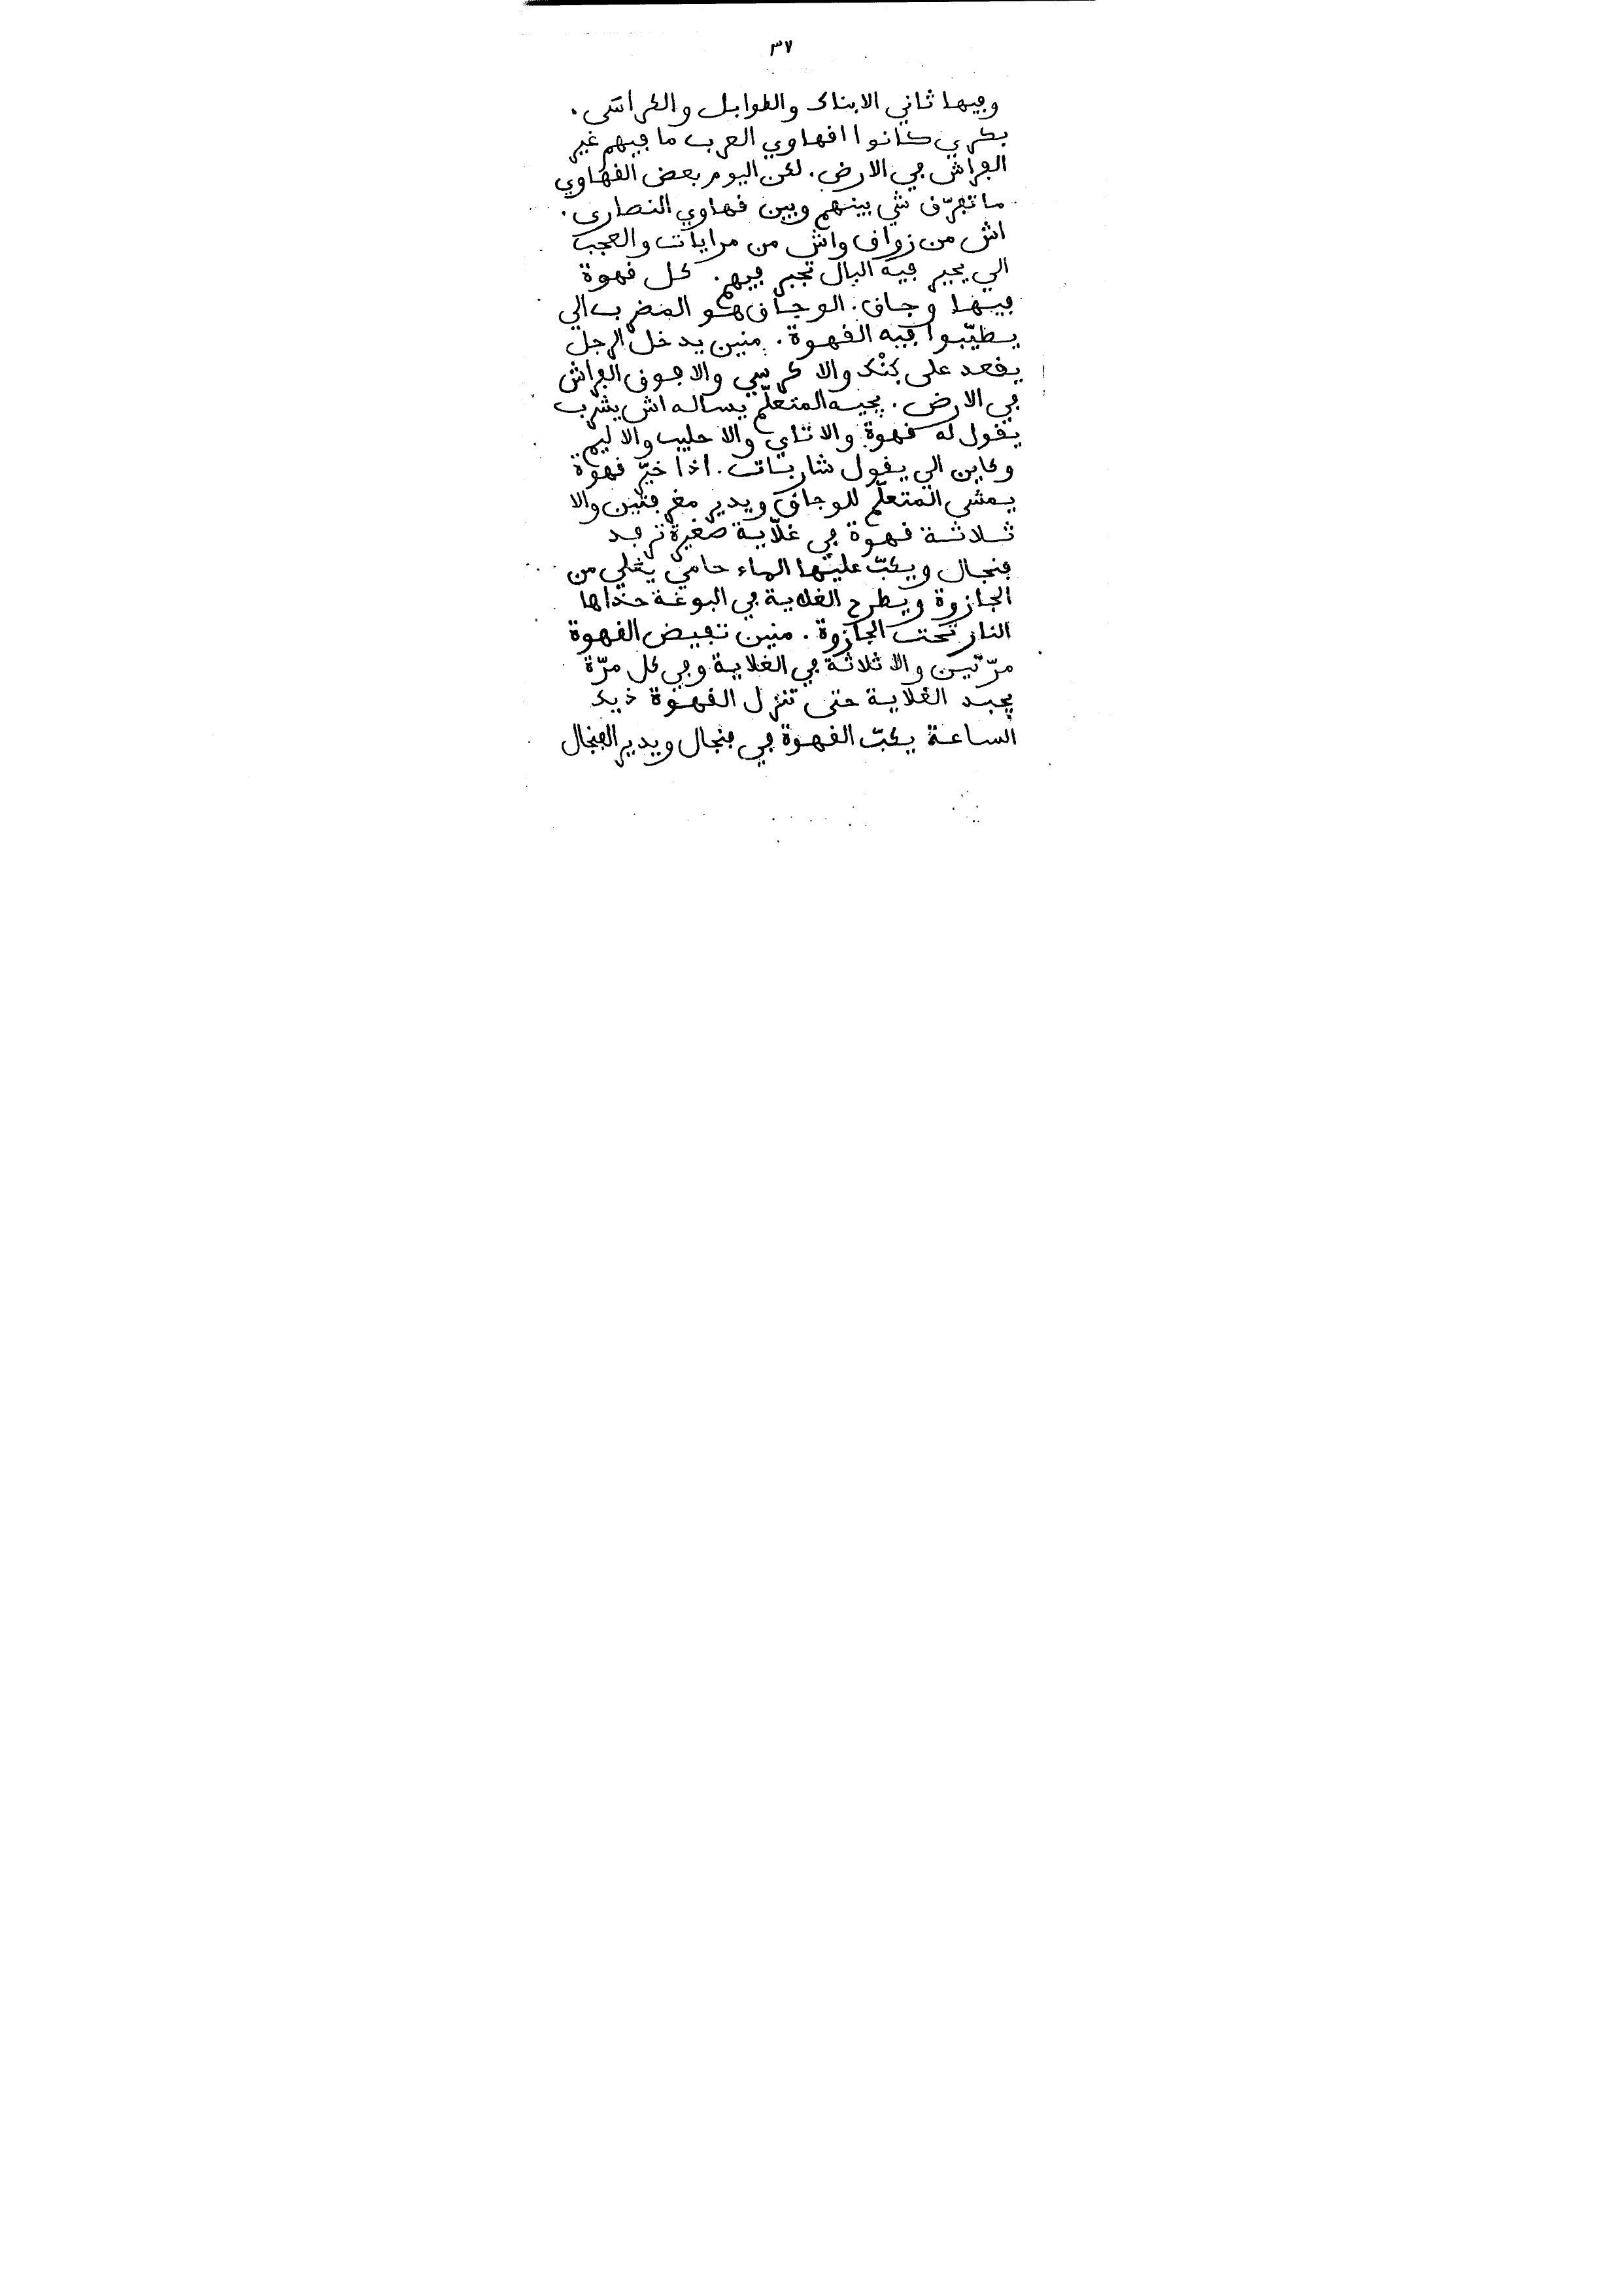 ٣٧
وفيها ثاني الابناك والطوابل والكراسى.
بكري كانوا اقهاوي العرب ما فيهم غير
الفراش في الارض. لكن اليوم بعض القهاوي
ما تفرّق شي بينهم وبين قهاوي النصارى.
اش من زواق واش من مرايات والعجب
الي يحير فيه البال تجبر فيهم. كل قهوة
فيها وجاق. الوجاق هو المضرب الي
يطيّبوا فيه القهوة. منين يدخل الرجل
يقعد على بَنْك والا كرسي والا فوق الفراش
في الارض. يجيه المتعلّم يساله اش يشرب
يقول له قهوة والا تاي والا حليب والا ليم
وكاين الي يقول شاربات. اذا خيّر قهوة
يمشي المتعلّم للوجاق ويدير مغرفتين والا
ثلاثة قهوة في غلّاية صغيرة ترفد
فنجال ويكبّ عليها الماء حامي يغلي من
الجازوة ويطرح الغلاية في البوغة حذاها
النار تحت الجازوة. منين تفيض القهوة
مرّتين والا ثلاثة في الغلاية وفي كل مرّة
يجبد الغلاية حتى تنزل القهوة ذيك
الساعة يكبّ القهوة في فنجال ويدير الفنجال